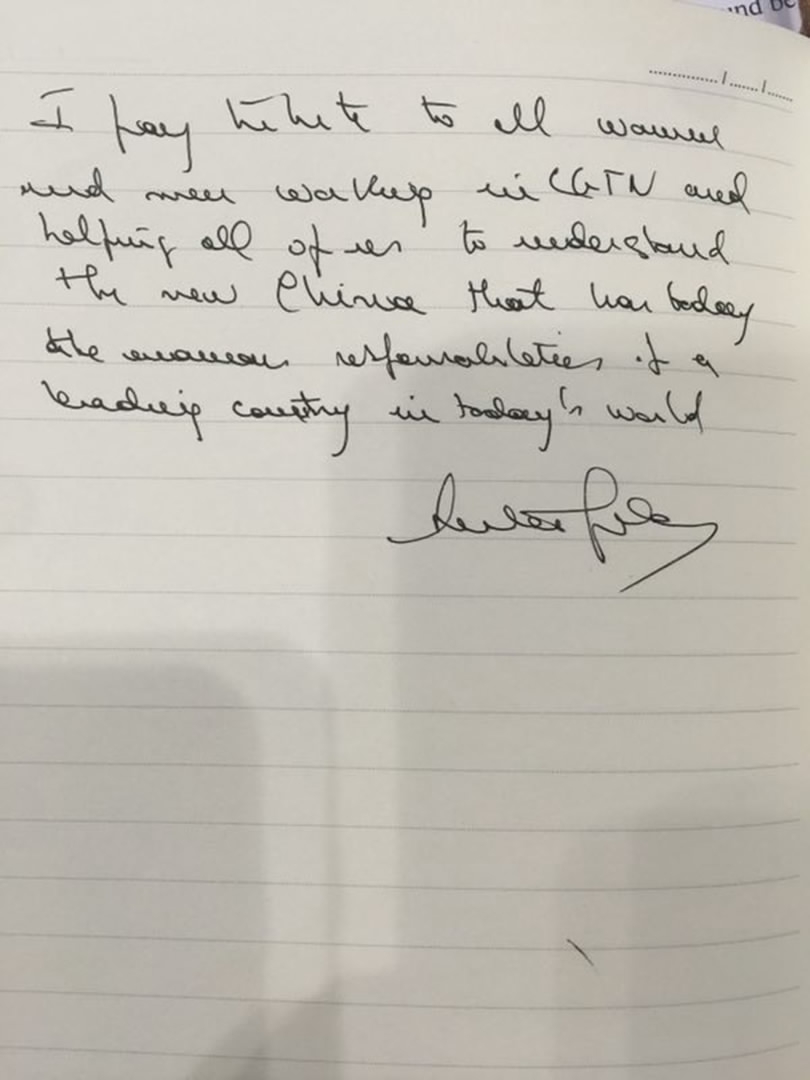 nd be
I pay tribute to all women
and men working in CGTN and
helping all of us to understand
the new China that has today
the enormous responsabilities of a
leading country in today's world